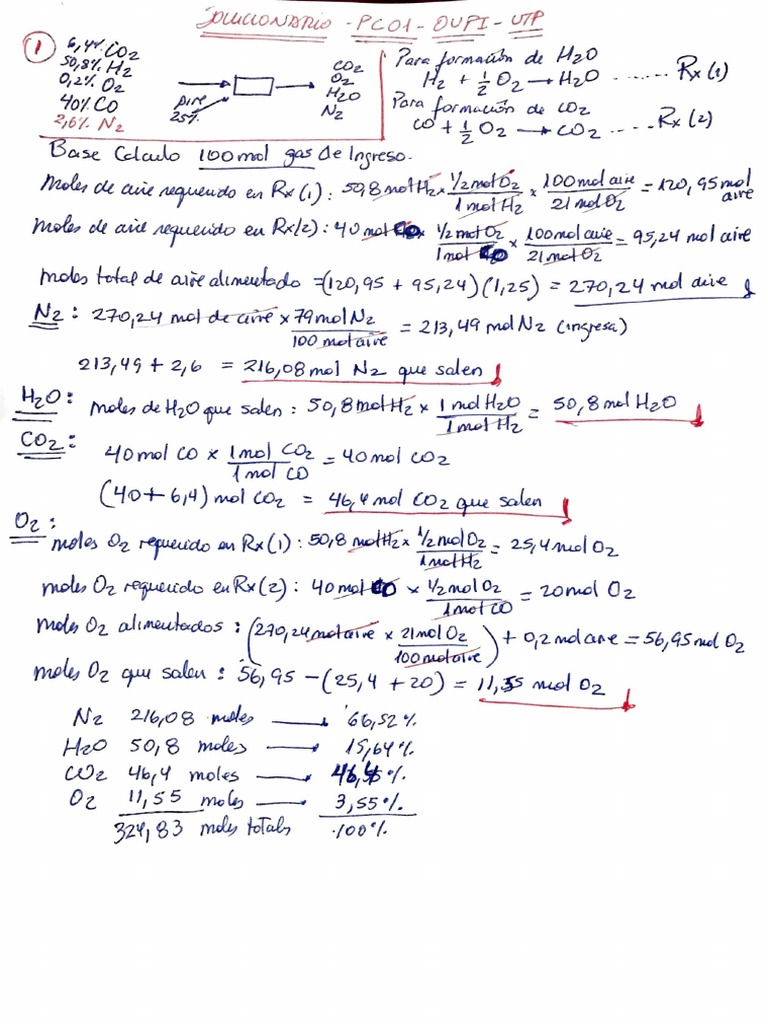 SOLUCIONARIO - PC01 - OUPI - UTP
1
6,4% CO2
50,8% H2
0,2% O2
40% CO
2,6% N2
Aire
25%
CO2
O2
H2O
N2
Para formación de H2O
H2 + 1/2 O2 → H2O ...... Rx(1)
Para formación de CO2
CO + 1/2 O2 → CO2 .... Rx(2)
Base Calculo 100mol gas de Ingreso.
Moles de aire requerido en Rx(1) : 50,8 mol H2 x (1/2 mol O2 / 1 mol H2) x (100 mol aire / 21 mol O2) = 120,95 mol aire
Moles de aire requerido en Rx(2) : 40 mol CO x (1/2 mol O2 / 1 mol CO) x (100 mol aire / 21 mol O2) = 95,24 mol aire
Moles total de aire alimentado = (120,95 + 95,24)(1,25) = 270,24 mol aire
N2 : 270,24 mol de aire x (79 mol N2 / 100 mol aire) = 213,49 mol N2 (ingresa)
213,49 + 2,6 = 216,08 mol N2 que salen
H2O : moles de H2O que salen : 50,8 mol H2 x (1 mol H2O / 1 mol H2) = 50,8 mol H2O
CO2 :
40 mol CO x (1 mol CO2 / 1 mol CO) = 40 mol CO2
(40 + 6,4) mol CO2 = 46,4 mol CO2 que salen
O2 :
moles O2 requerido en Rx(1) : 50,8 mol H2 x (1/2 mol O2 / 1 mol H2) = 25,4 mol O2
moles O2 requerido en Rx(2) : 40 mol CO x (1/2 mol O2 / 1 mol CO) = 20 mol O2
moles O2 alimentados : (270,24 mol aire x (21 mol O2 / 100 mol aire)) + 0,2 mol aire = 56,95 mol O2
moles O2 que salen : 56,95 - (25,4 + 20) = 11,55 mol O2
N2 216,08 moles → 66,52%
H2O 50,8 moles → 15,64%
CO2 46,4 moles →
O2 11,55 moles → 3,55%
324,83 moles totals 100%